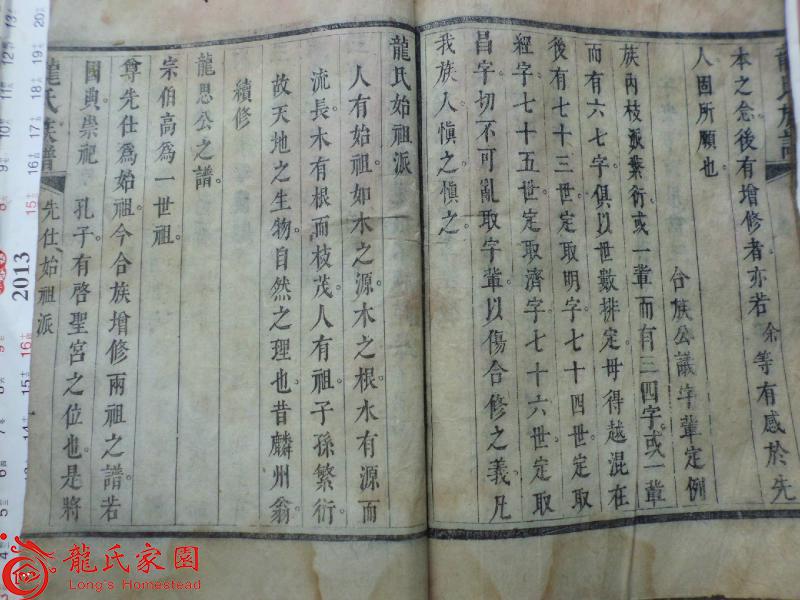 本之念後有增修者亦若余等有感於先
人固所願也
合族公議字輩定例
族內枝派繁衍或一輩而有三四字或一輩
而有六七字俱以世數排定毋得越混在
後有七十三世定取明字七十四世定取
經字七十五世定取濟字七十六世定取
昌字切不可亂取字輩以傷合修之義凡
我族人慎之慎之
龍氏始祖派
人有始祖如水之源木之根水有源而
流長木有根而枝茂人有祖子孫繁衍
故天地之生物自然之理也昔麟州翁
續修
龍恩公之譜
宗伯高為一世祖
尊先仕為始祖今合族增修兩祖之譜若
國典崇祀 孔子有啓聖宮之位也是將
龍氏族譜 先仕始祖派
2013
龍氏家園
Long's Homestead